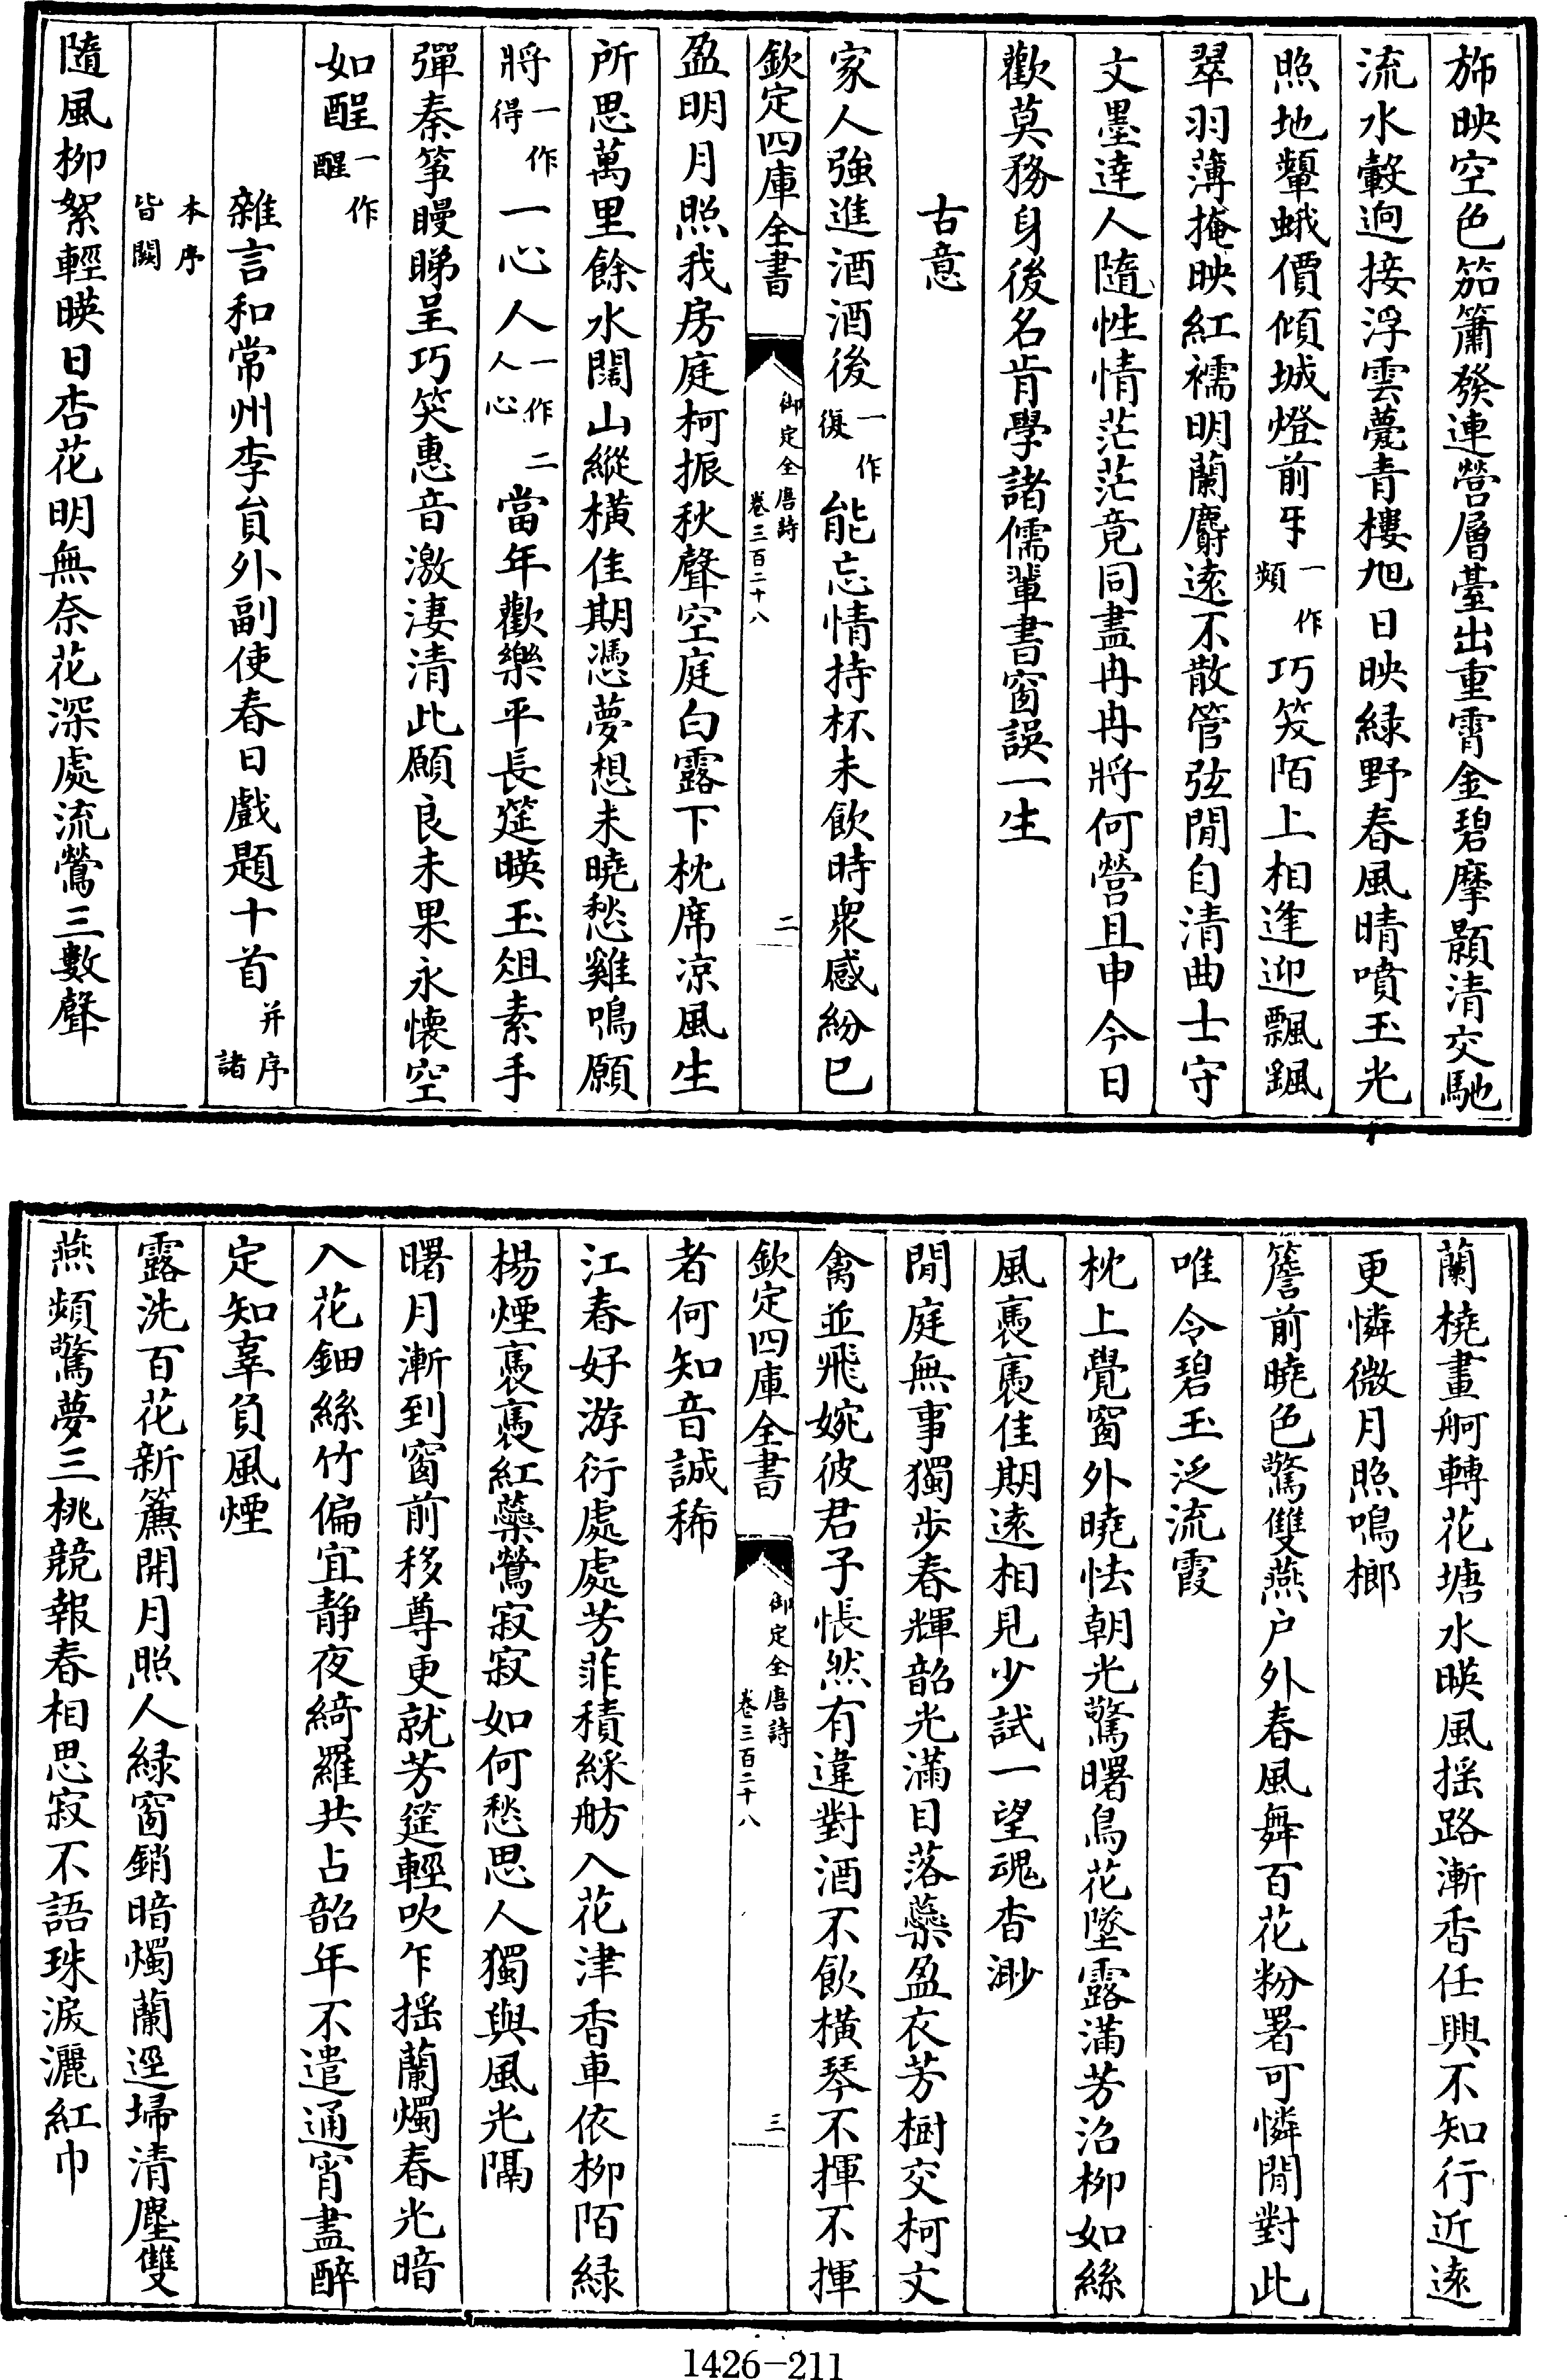 斾映空色笳簫發連營層臺出重霄金碧摩顥清交馳
流水轂迥接浮雲甍青樓旭日映緑野春風晴噴玉光
照地顰蛾價傾城燈前牙一作頻巧笑陌上相逢迎飄颻
翠羽薄掩映紅襦明蘭麝逺不散管弦閒自清曲士守
文墨逹人隨性情茫茫竟同盡冉冉將何營且申今日
歡莫務身後名肯學諸儒輩書窗誤一生
古意
家人強進酒酒後一作復能忘情持杯未飲時衆感紛已
欽定四庫全書
御定全唐詩
卷三百二十八
二
盈明月照我房庭柯振秋聲空庭白露下枕席凉風生
所思萬里餘水闊山縱橫佳期憑夢想未曉愁雞鳴願
將一作得一心人一作二人心當年歡樂平長筵暎玉俎素手
彈秦筝曼睇呈巧笑惠音激淒清此願良未果永懷空
如酲一作醒
雜言和常州李員外副使春日戲題十首并序諸
本序皆闕
隨風栁絮輕暎日杏花明無奈花深處流鶯三數聲
蘭橈畫舸轉花塘水暎風揺路漸香任興不知行近逺
更憐微月照鳴榔
簷前曉色驚雙燕户外春風舞百花粉署可憐閒對此
唯令碧玉泛流霞
枕上覺窗外曉怯朝光驚曙鳥花墜露滿芳沼栁如絲
風裊裊佳期逺相見少試一望魂杳渺
閒庭無事獨步春輝韶光滿目落蘂盈衣芳樹交柯文
禽並飛婉彼君子悵然有違對酒不飲横琴不揮不揮
欽定四庫全書
御定全唐詩
卷三百二十八
三
者何知音誠稀
江春好游衍處處芳菲積綵舫入花津香車依栁陌緑
楊煙裊裊紅蘂鶯寂寂如何愁思人獨與風光隔
曙月漸到窗前移尊更就芳筵輕吹乍揺蘭燭春光暗
入花鈿絲竹偏宜静夜綺羅共占韶年不遣通宵盡醉
定知辜負風煙
露洗百花新簾開月照人緑窗銷暗燭蘭逕埽清塵雙
燕頻驚夢三桃競報春相思寂不語珠淚灑紅巾
1426-211